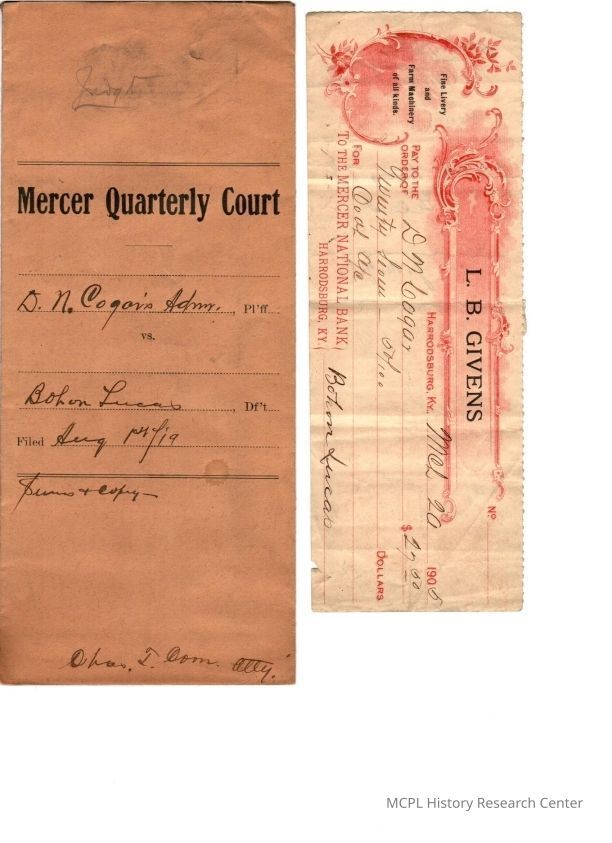 Judgt
Mercer Quarterly Court
D. N. Cogar's Admr. Pl'ff
vs.
Bohon Lucas, Df't.
Filed Aug 1st/19
Sums & copy
Chas. T. Corn. Atty.
Fine Livery
and
Farm Machinery
of all kinds.
L. B. GIVENS
No
HARRODSBURG, KY. Mch 20 1905
PAY TO THE
ORDER OF D N Cogar $27.50
Twenty Seven 50/100 DOLLARS
FOR
TO THE MERCER NATIONAL BANK
HARRODSBURG, KY.
Bohon Lucas
MCPL History Research Center